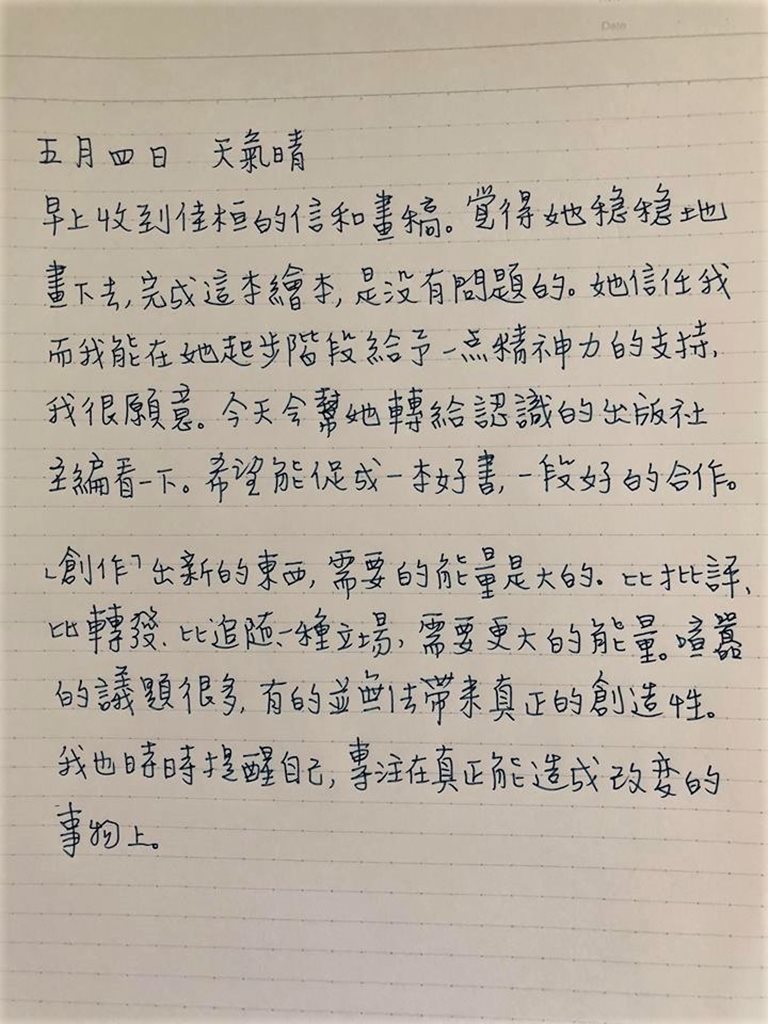 Date
五月四日 天氣晴
早上收到佳桓的信和畫稿。覚得她穏穏地
畫下去,完成這本繪本,是没有問題的。她信任我
而我能在她起步階段給予一点精神力的支持,
我很願意。今天会幫她轉給認識的出版社
主編看一下。希望能促成一本好書,一段好的合作。
「創作」出新的東西,需要的能量是大的。比批評、
比轉發、比追随一種立場,需要更大的能量。喧囂
的議題很多,有的並無法帶来真正的創造性。
我也時時提醒自己,專注在真正能造成改変的
事物上。